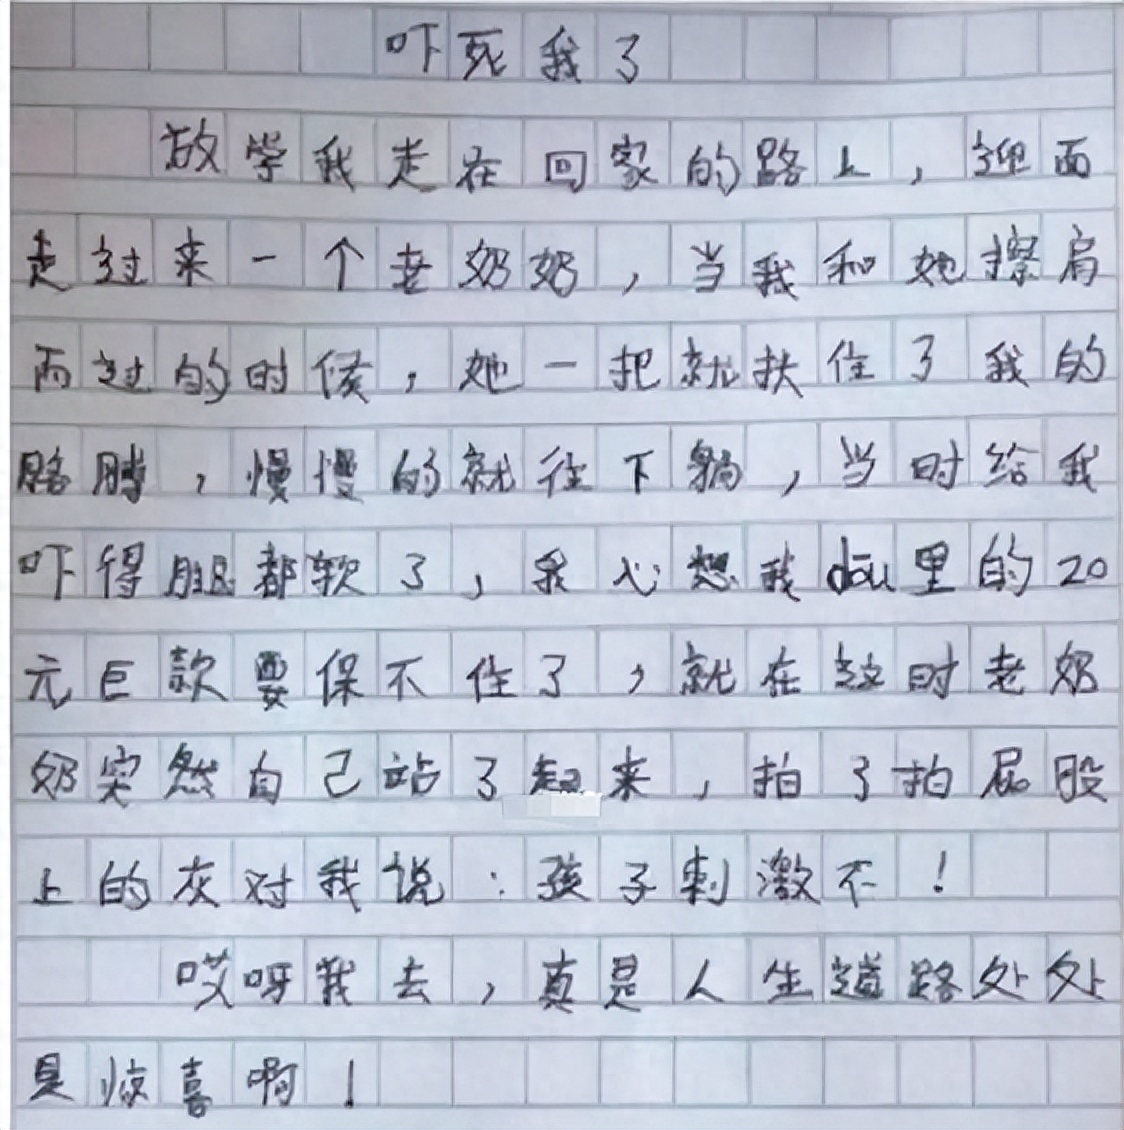 吓死我了
放学我走在回家的路上，迎面
走过来一个老奶奶，当我和她擦肩
而过的时候，她一把就扶住了我的
胳膊，慢慢的就往下躺，当时给我
吓得腿都软了，我心想我dōu里的20
元巨款要保不住了，就在这时老奶
奶突然自己站了起来，拍了拍屁股
上的灰对我说：孩子刺激不！
哎呀我去，真是人生道路处处
是惊喜啊！